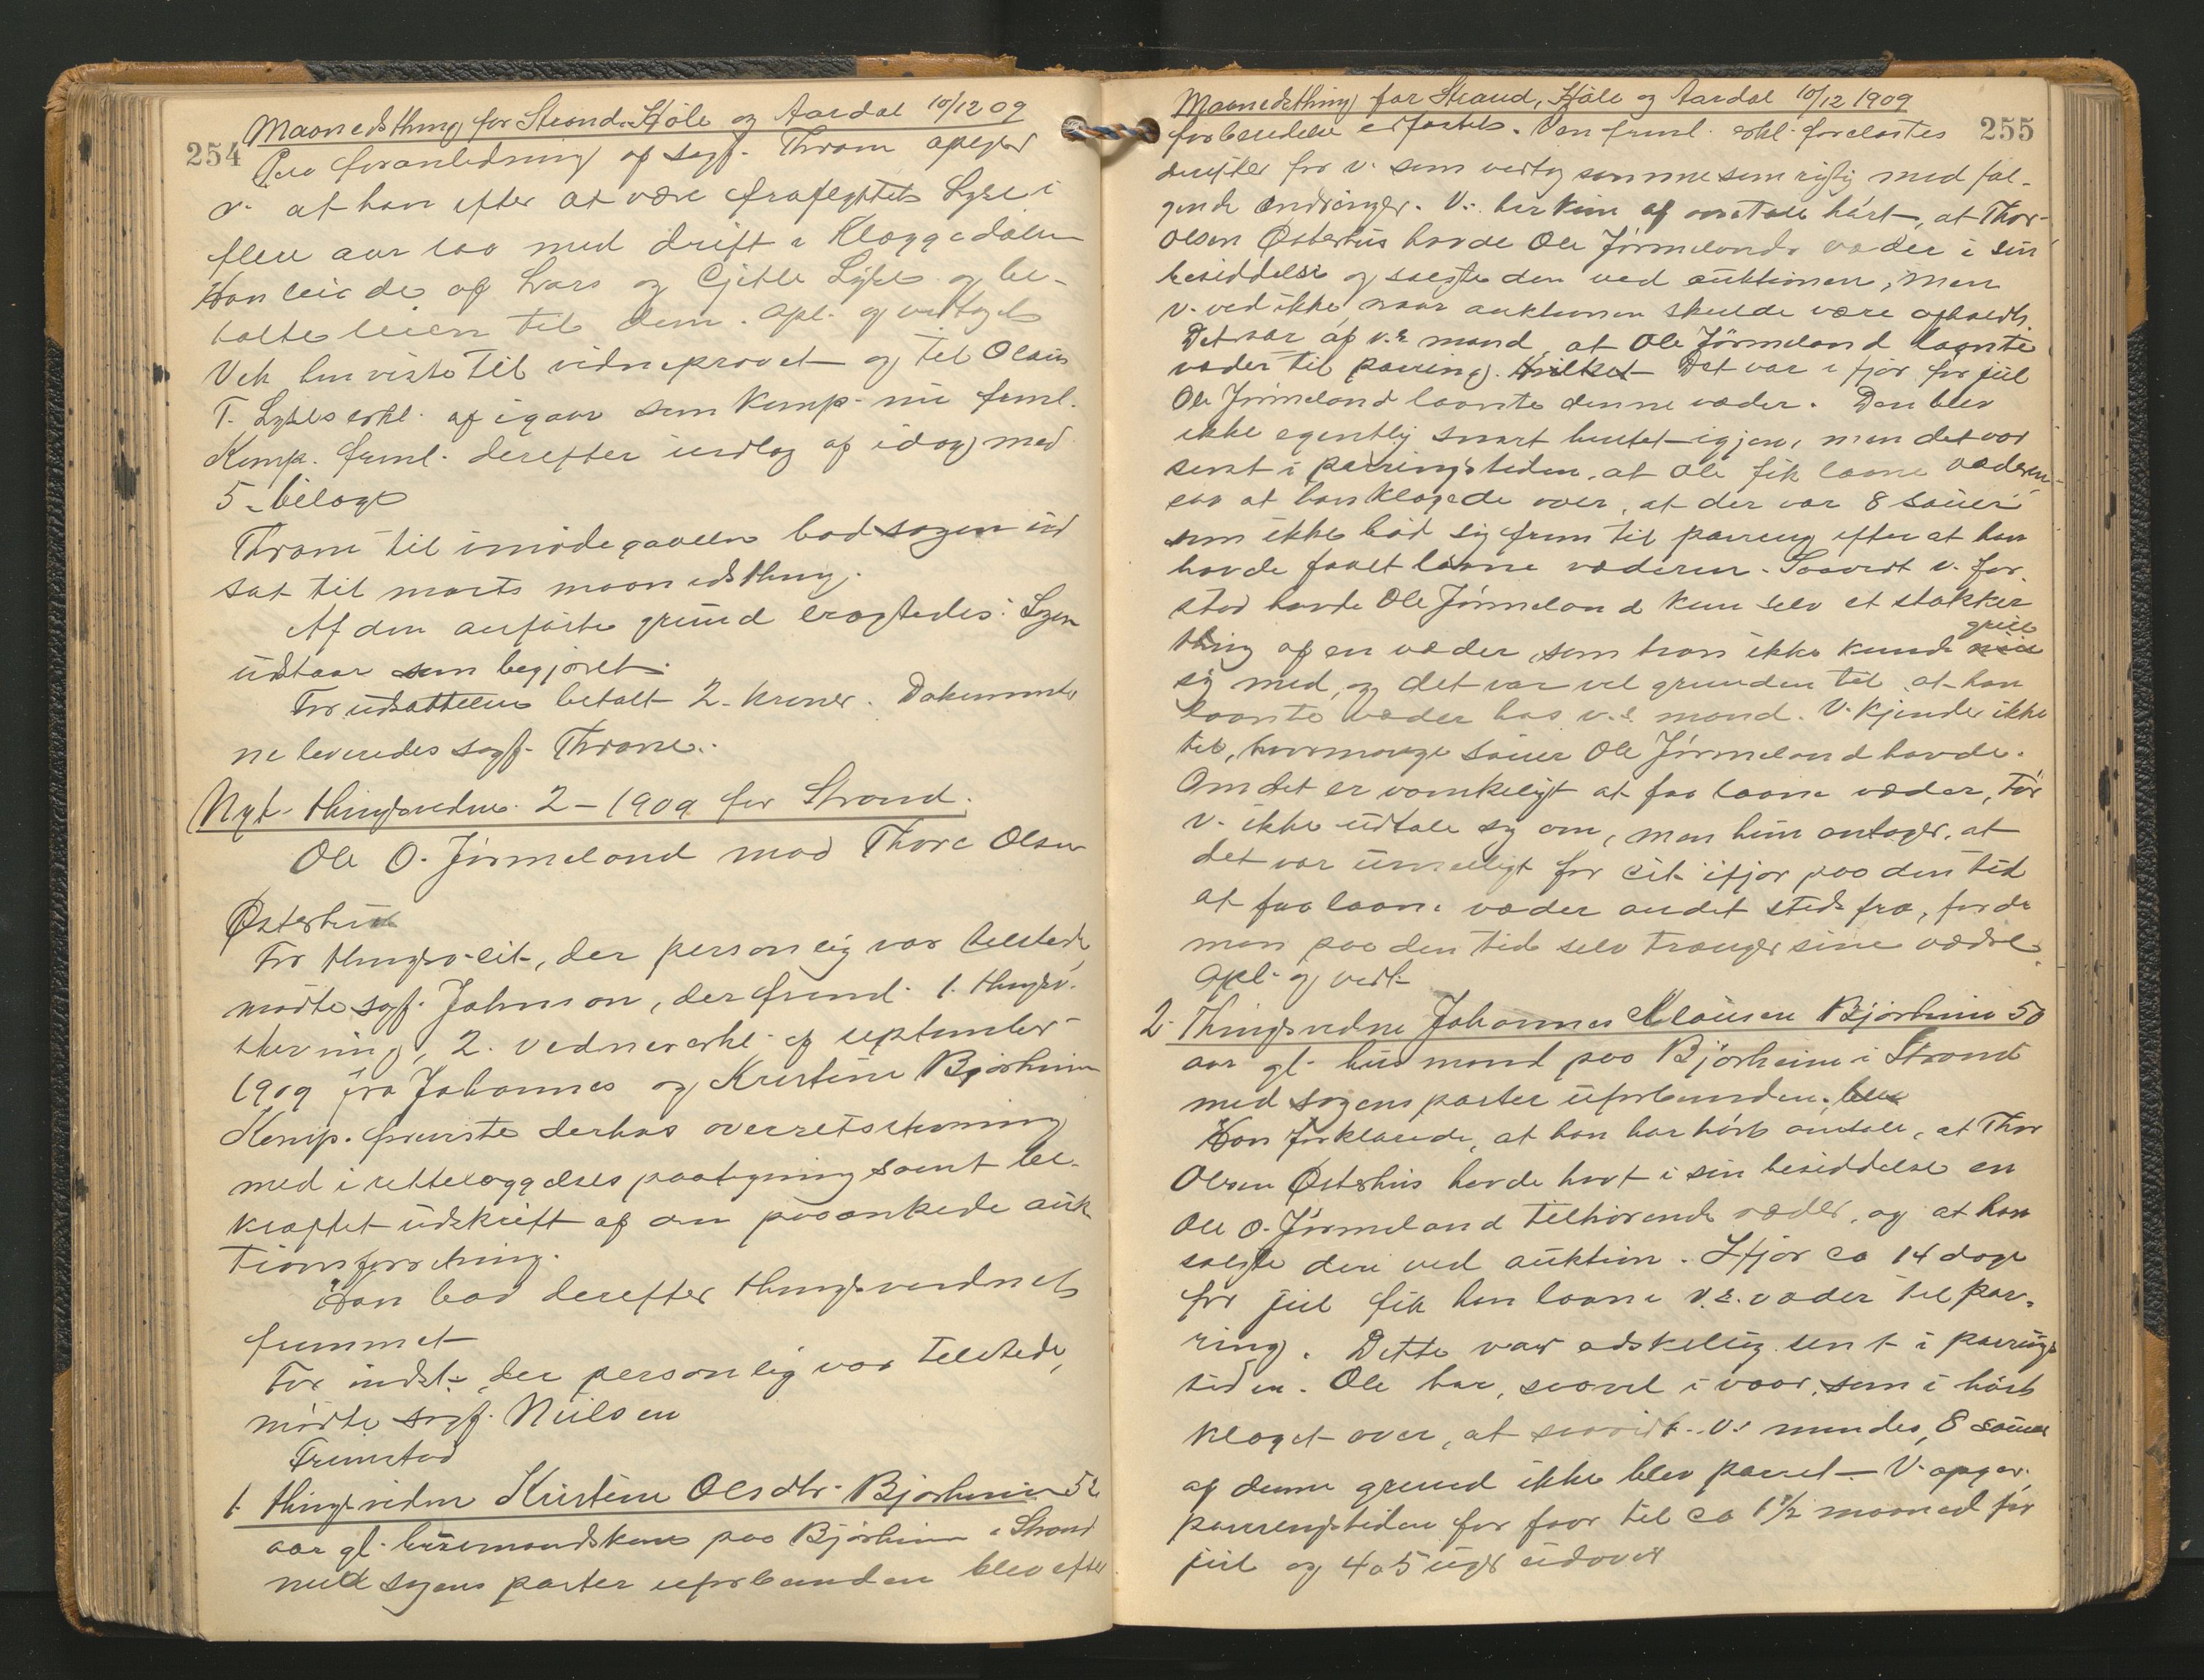 Maanedsthing for Strand, Hjøle og Aardal 10/12 09
254
Paa foranledning af sagf. Thrane opgjør
v. at han efter at være fraflyttet Lyse i
flere aar laa med drift i Kloggedalen
Han leiede af Lars og Gjetle Lyse og be-
talte leien til dem. Opl. og vedtaget
Vek henviste til vidneprovet og til Olaus
T. Lyses erkl. af igaar som Komp. nu freml.
Komp. freml. derefter indlæg af idag med
5 bilage
Thrane til imødegaaelse bad sagen ud
sat til marts maanedsthing.
Af den anførte grund eragtedes: Sagen
udstaar som begjæret.
For udsættelsen betalt 2 kroner. Dokumenter
ne leveredes sagf. Thrane.
Nyt. thingsvidne 2 - 1909 for Strand.
Ole O. Jørmeland mod Thore Olsen
Østerhus
For thingsv. cit., der personlig var tilstede,
mødte sagf. Johnson, der freml. 1. thingsv.
stevning, 2. vidnererkl. af september
1909 fra Johannes og Kristine Bjørheim
Komp. freviste derhos overretsstevning
med irettelæggelsespaategning samt be-
kræftet udskrift af den paaankede auk
tionsforretning.
Han bad derefter thingsvidnet
fremmet
For indst., der personlig var tilstede,
mødte sagf. Nielsen
Fremstod
1. thingsvidne Kristine Olsdtr. Bjørheim 52
aar gl. husmandskone paa Bjørheim i Strand
med sagens parter uforbunden blev efter
Maanedsthing for Strand, Hjøle og Aardal 10/12 1909
255
forberedelse edfæstet. Den freml. erkl. forelæstes
derefter for v. som vedtog samme som rigtig med føl-
gende ændringer. V. har kun af omtale hørt, at Thor
Olsen Østerhus havde Ole Jørmelands væder i sin
besiddelse og solgte den ved auktionen, men
v. ved ikke, naar auktionen skulde være afholdt.
Det var af v.s mand, at Ole Jørmeland laante
væder til parring. Hvilket Det var i fjor før jul
Ole Jørmeland laante denne væder. Den blev
ikke egentlig snart hentet igjen, men det var
senst i parringstiden, at Ole fik laane væderen
saa at han klagede over, at der var 8 sauer
som ikke bød sig frem til parring efter at han
havde faaet laane væderen. Saavidt v. for-
stod havde Ole Jørmeland kun selv et stakker
thing af en væder, som han ikke kunde greie
sig med, og det var vel grunden til at han
laante væder hos v.s mand. V. kjender ikke
til, hvormange sauer Ole Jørmeland havde.
Om det er vanskeligt at faa laane væder, tør
v. ikke udtale sig om, men hun antager, at
det var umuligt for cit. ifjor paa den tid
at faa laane væder andet steds fra, fordi
man paa den tid selv trænger sine vædre.
Opl. og vedt.
2. Thingsvidne Johannes Klausen Bjørheim 50
aar gl. husmand paa Bjørheim i Strand
med sagens parter uforbunden. blev
Han forklarede, at han har hørt omtale, at Thor
Olsen Østerhus havde havt i sin besiddelse en
Ole O. Jørmeland tilhørende væder, og at han
solgte den ved auktion. Ifjor ca 14 dage
før jul fik han laane v.s. væder til par-
ring. Dette var adskillig sent i parrings
tiden. Ole har, saavel i vaar, som i høst
klaget over, at saavidt v. mindes, 8 sauer
af denne grund ikke blev parret. V. opgav
parringstiden for faar til ca 1 1/2 maaned før
jul og 4 a 5 uger udover